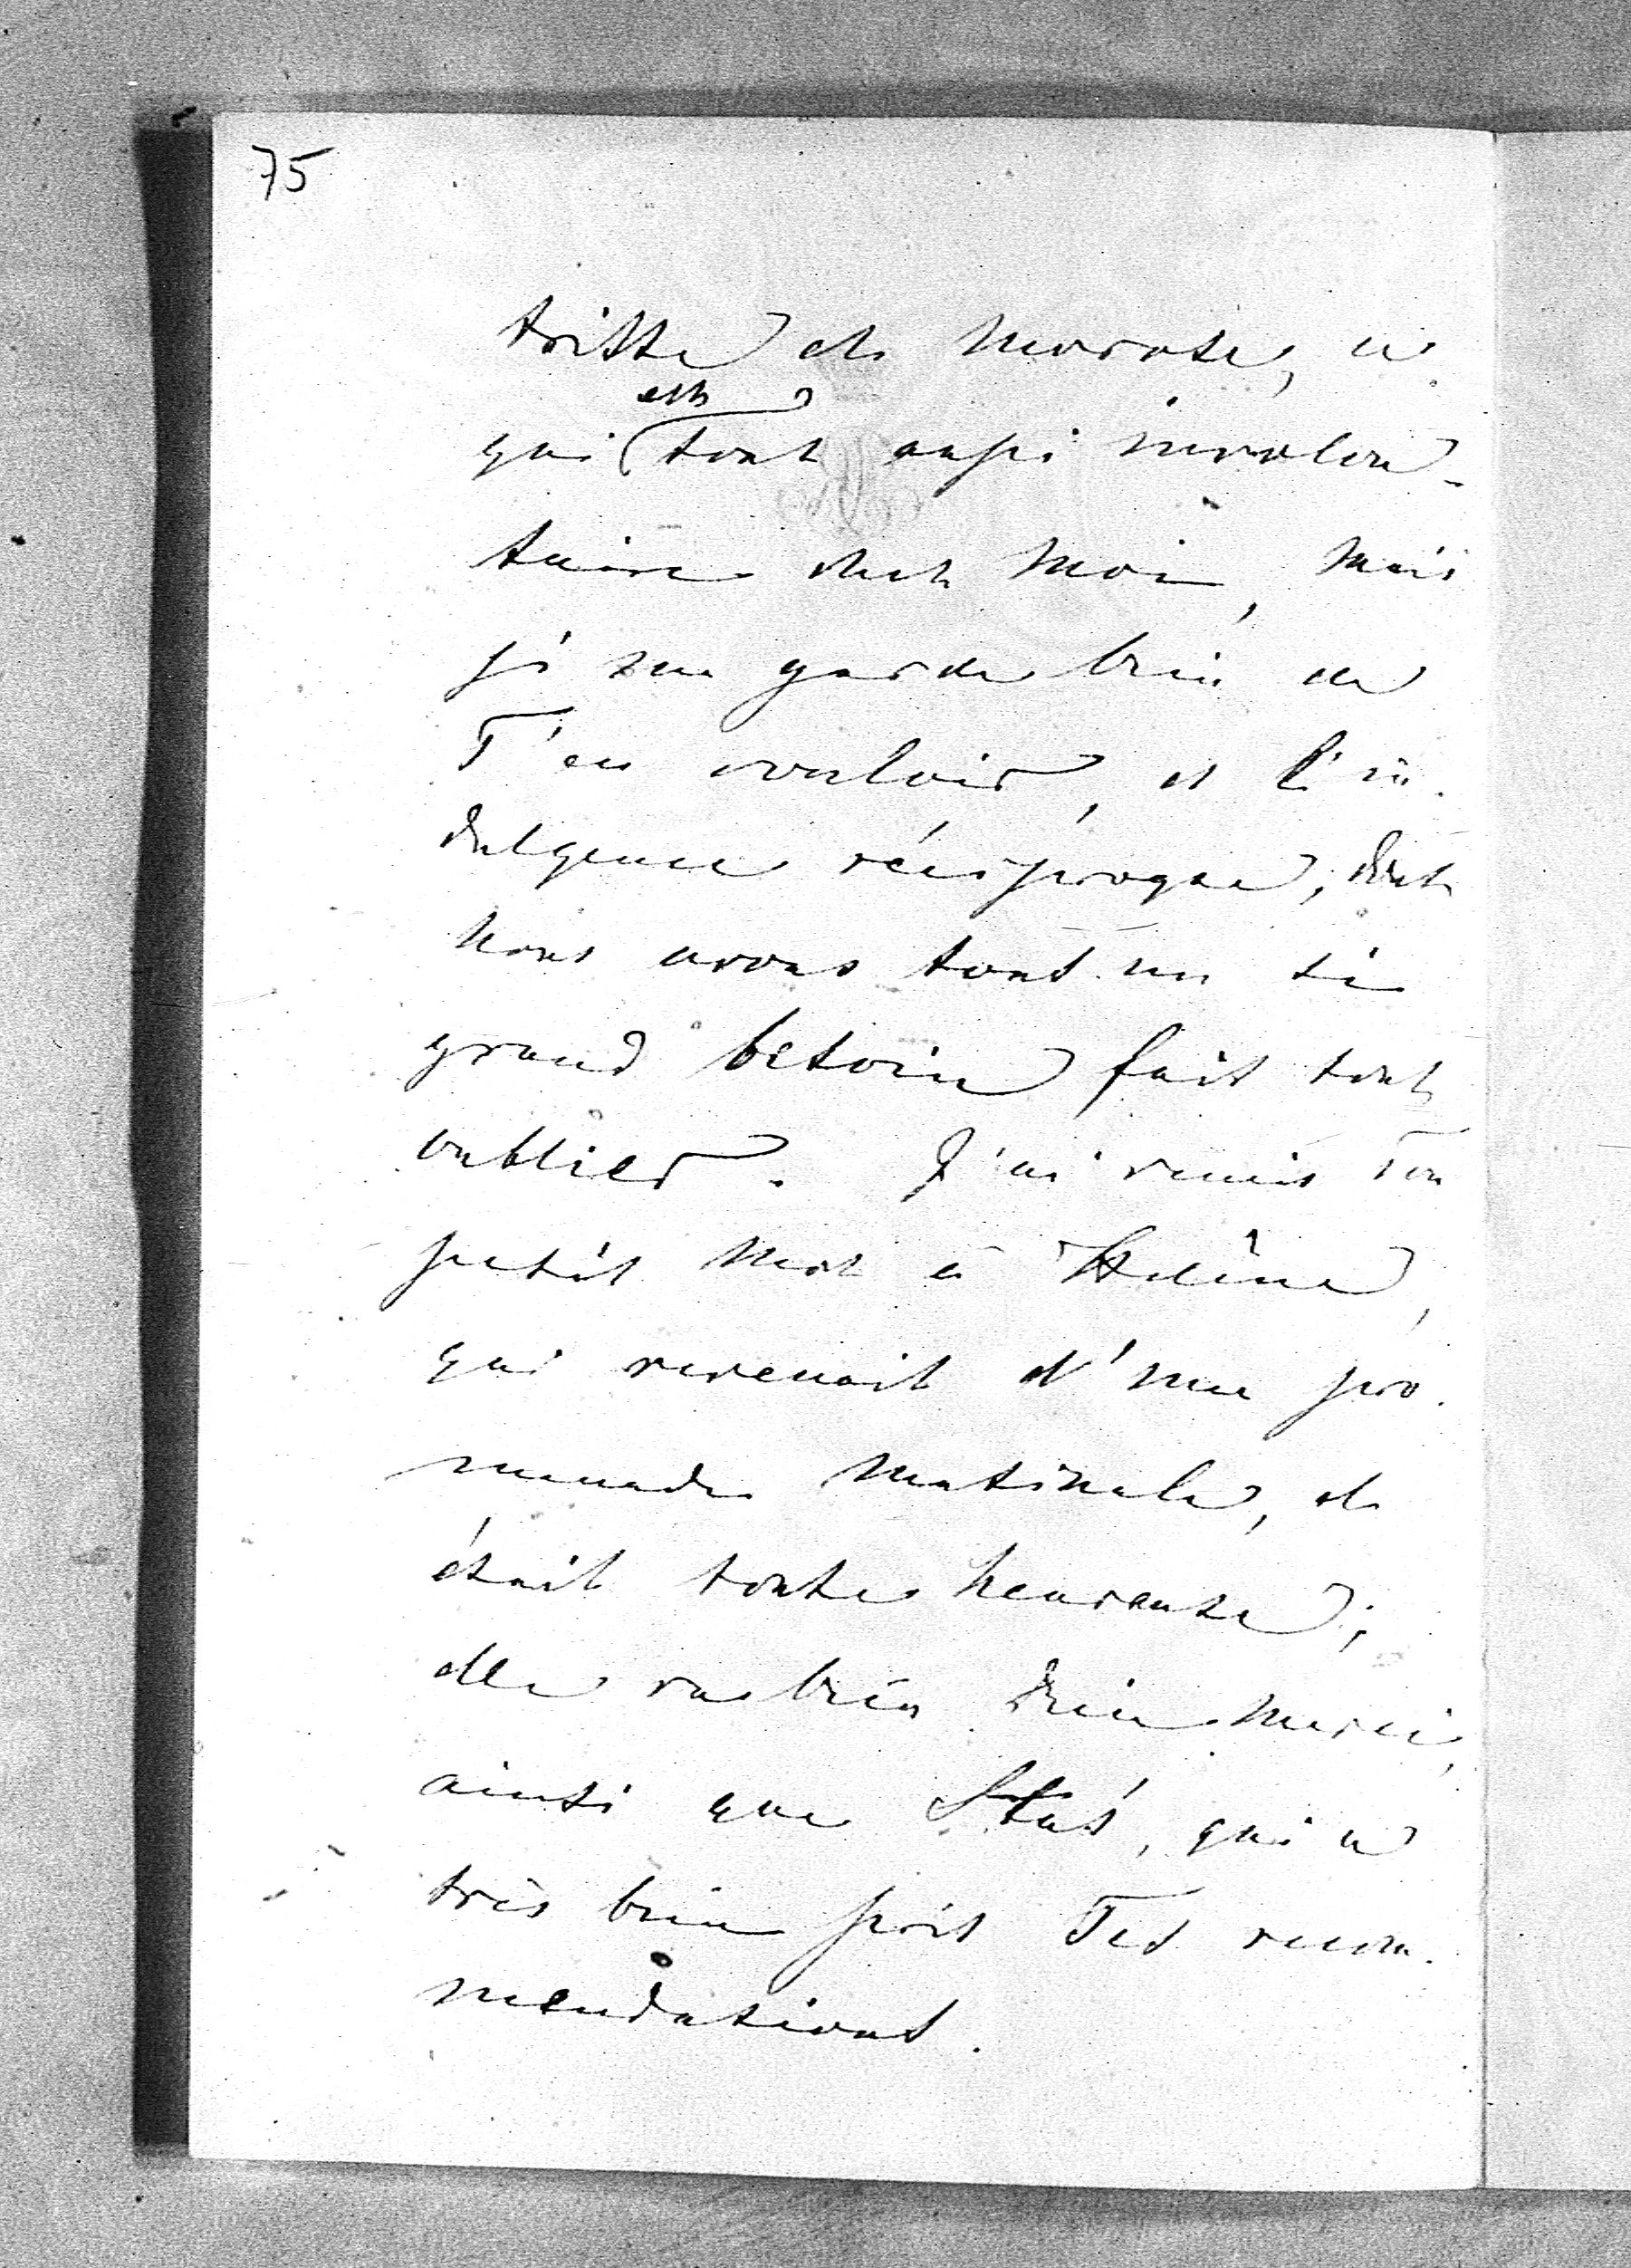 75
triste et morose, ce
qui est tout aussi involon-
taire chez moi, mais
je me garde bien de
T'en vouloir, et l'in-
dulgence réciproque, dont
nous avons tous un si
grand besoin fait tout
oublier. J'ai remis Ton
petit mot à Hélène,
qui revenait d'une pro-
menade matinale, et
était toute heureuse;
elle va bien Dieu merci,
ainsi que Stas, qui a
très bien pris Tes recom-
mendations.